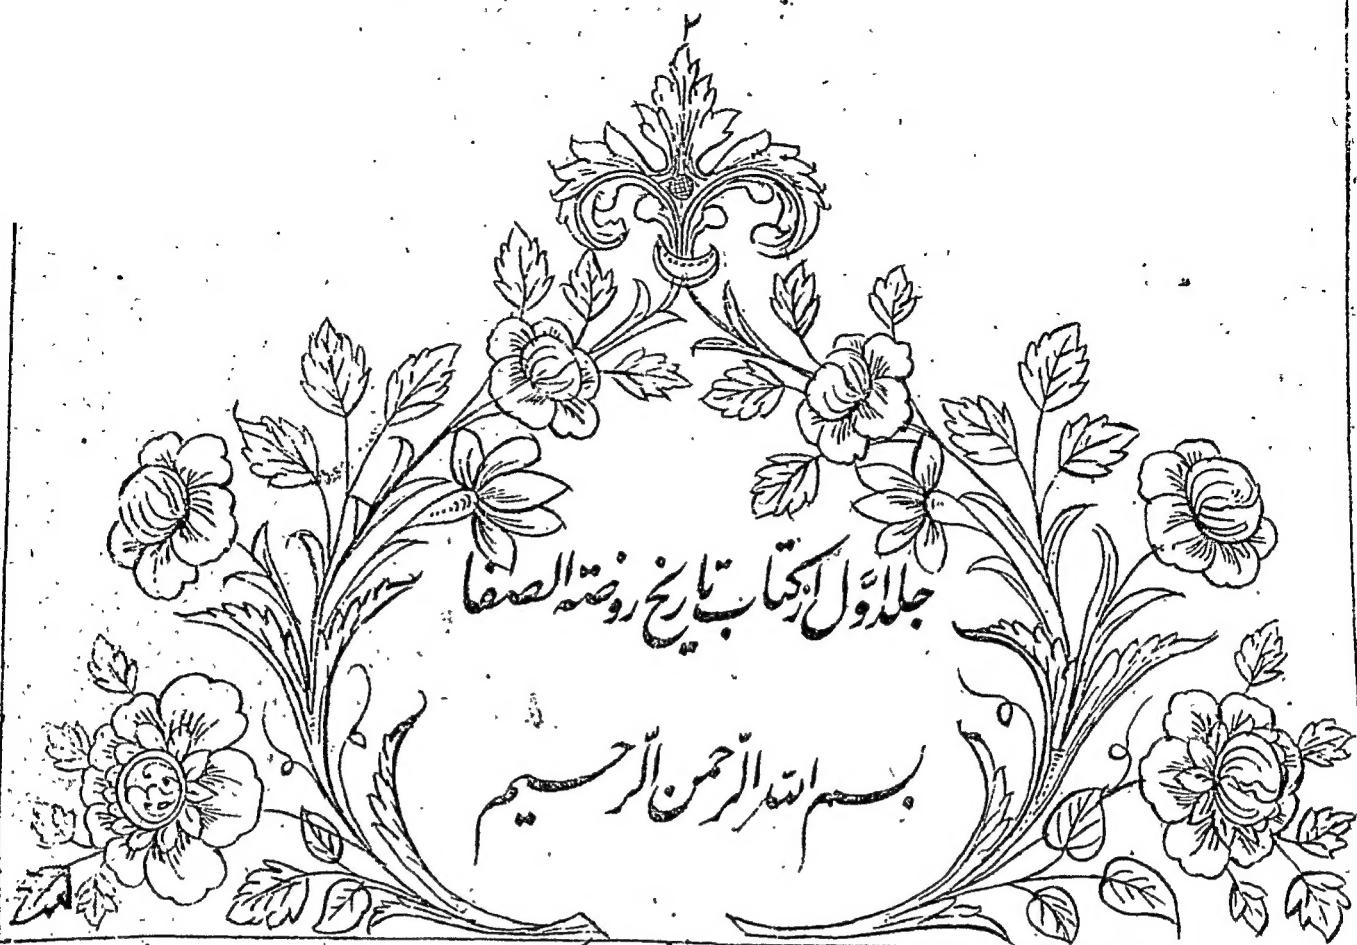 ۲
جلد اوّل از کتاب تاریخ روضة الصفا
بسم الله الرّحمن الرّحیم